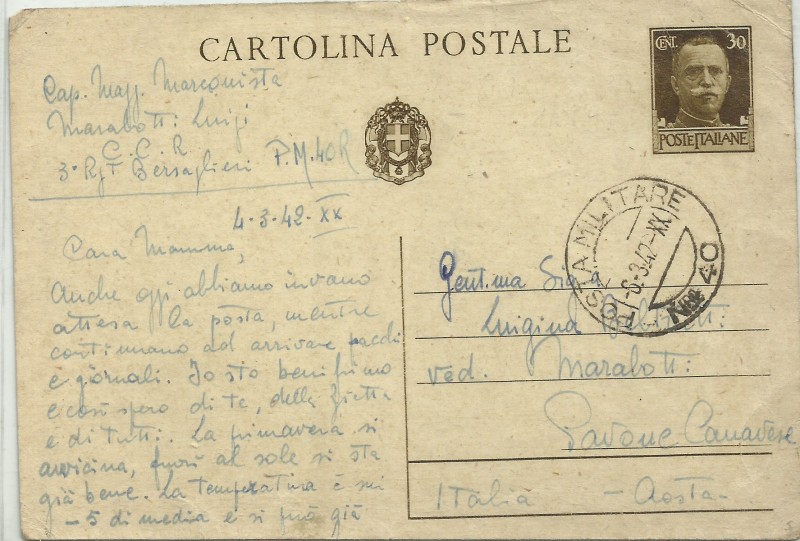 CARTOLINA POSTALE
CENT. 30
POSTE ITALIANE
Cap. Magg. Marconista
Marabotti Luigi
C. C. R
3° Rgt Bersaglieri P.M. 40 R
4-3-42-XX
POSTA MILITARE
-6.3.42-XX
N. 40
Cara Mamma,
Anche oggi abbiamo invano
attesa la posta, mentre
continuano ad arrivare pacchi
e giornali. Io sto benissimo
e così spero di te, della Zietta
e di tutti. La primavera si
avvicina, fuori al sole si sta
già bene. La temperatura è sui
-5 di media e si può già
Gent.ma Sig.a
Luigina
ved. Marabotti
Pavone Canavese
Italia - Aosta -